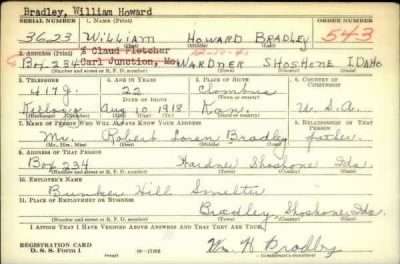 Bradley, William Howard
SERIAL NUMBER 1. NAME (Print) ORDER NUMBER
3623 WILLIAM HOWARD BRADLEY 543
(First) (Middle) (Last)
2. ADDRESS (Print) % Claud Fletcher 12-10-41
Box 234 Carl Junction, Mo. WARDNER SHOSHONE IDAHO
(Number and street or R. F. D. number) (Town) (County) (State)
3. TELEPHONE 4. AGE IN YEARS 5. PLACE OF BIRTH 6. COUNTRY OF CITIZENSHIP
417J 22 Clombus
DATE OF BIRTH (Town or county)
Kellogg Aug 10 1918 Kan. U. S. A.
(Exchange) (Number) (Mo.) (Day) (Yr.) (State or country)
7. NAME OF PERSON WHO WILL ALWAYS KNOW YOUR ADDRESS 8. RELATIONSHIP OF THAT PERSON
Mr. Robert Loren Bradley father
(Mr., Mrs., Miss) (First) (Middle) (Last)
9. ADDRESS OF THAT PERSON
Box 234 Wardner Shoshone Ida.
(Number and street or R. F. D. number) (Town) (County) (State)
10. EMPLOYER'S NAME
Bunker Hill Smelter
11. PLACE OF EMPLOYMENT OR BUSINESS
Bradley, Shoshone, Ida.
(Number and street or R. F. D. number) (Town) (County) (State)
I AFFIRM THAT I HAVE VERIFIED ABOVE ANSWERS AND THAT THEY ARE TRUE.
REGISTRATION CARD
D. S. S. Form 1 16—17105 Wm. H Bradley
(Registrant's signature)